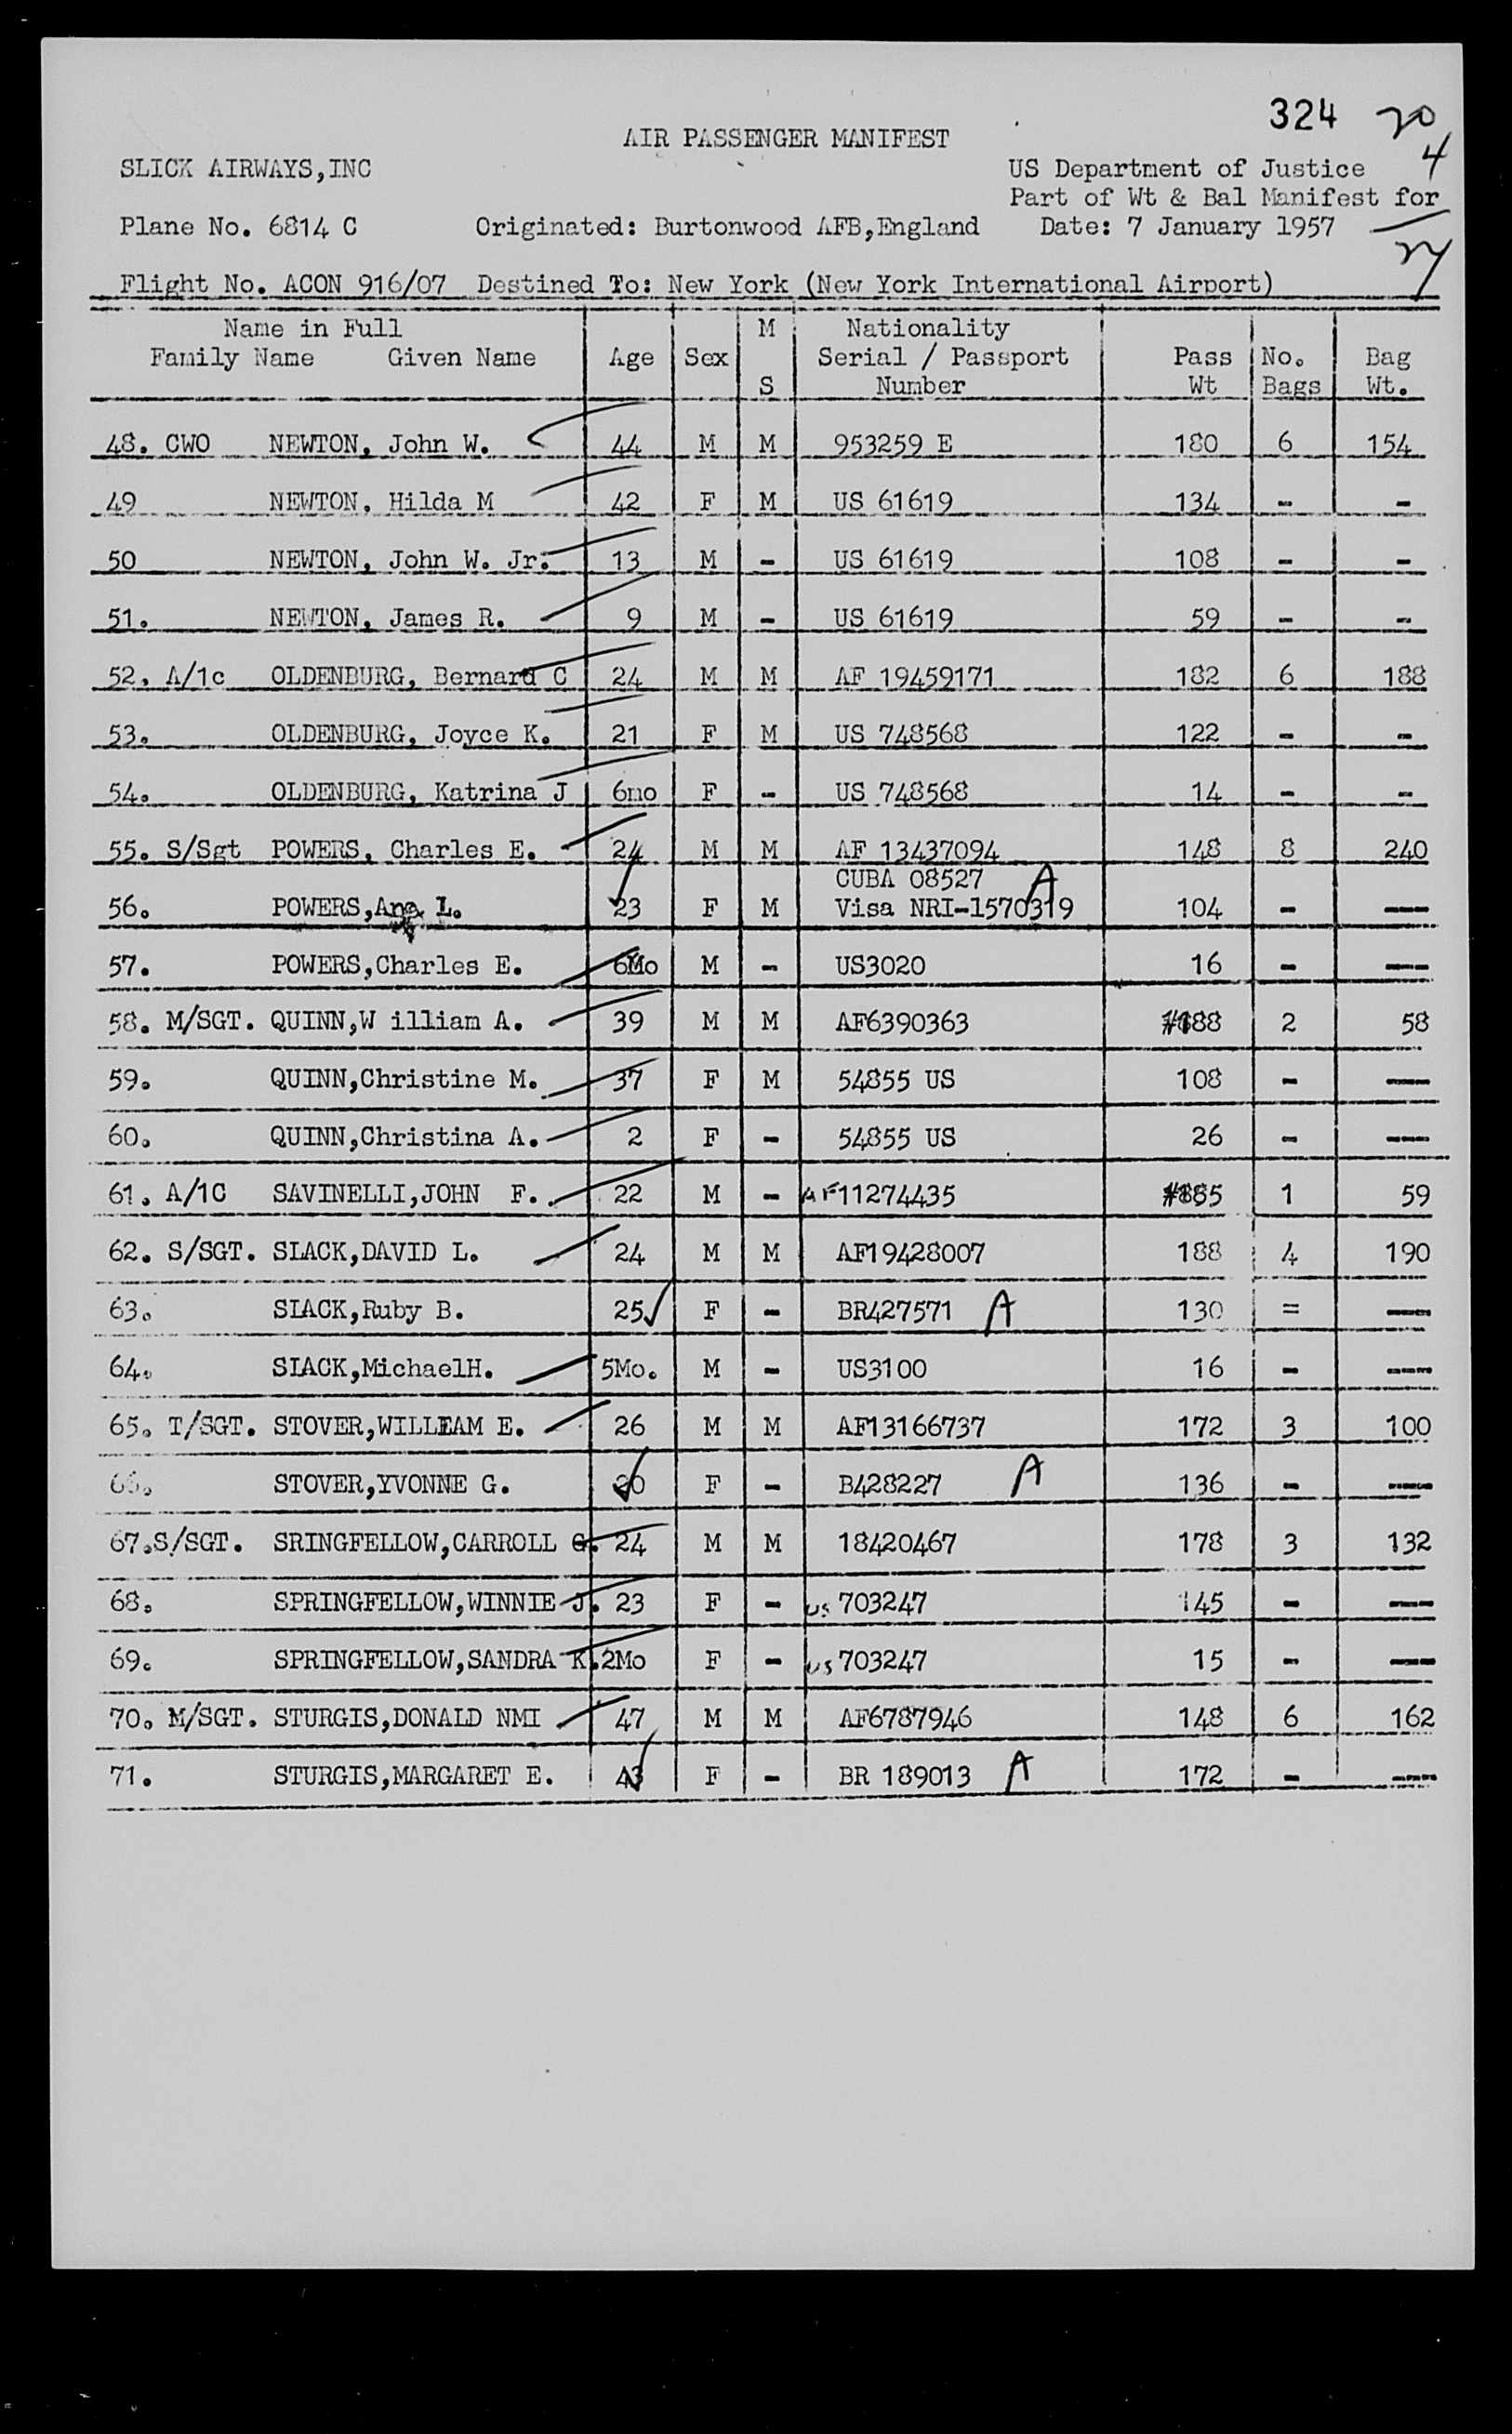 324 20
AIR PASSENGER MANIFEST 4
SLICK AIRWAYS,INC US Department of Justice
Part of Wt & Bal Manifest for
Plane No. 6814 C Originated: Burtonwood AFB,England Date: 7 January 1957
24
Flight No. ACON 916/07 Destined To: New York (New York International Airport)
Name in Full M Nationality
Family Name Given Name Age Sex Serial / Passport Pass No. Bag
S Number Wt Bags Wt.
48. CWO NEWTON, John W. 44 M M 953259 E 180 6 154
49 NEWTON, Hilda M 42 F M US 61619 134 - -
50 NEWTON, John W. Jr. 13 M - US 61619 108 - -
51. NEWTON, James R. 9 M - US 61619 59 - -
52. A/1c OLDENBURG, Bernard C 24 M M AF 19459171 182 6 188
53. OLDENBURG, Joyce K. 21 F M US 748568 122 - -
54. OLDENBURG, Katrina J 6mo F - US 748568 14 - -
55. S/Sgt POWERS, Charles E. 24 M M AF 13437094 148 8 240
CUBA 08527 A
56. POWERS,Ana L. 23 F M Visa NRI-1570319 104 - ---
57. POWERS,Charles E. 6Mo M - US3020 16 - ---
58. M/SGT. QUINN,W illiam A. 39 M M AF6390363 #188 2 58
59. QUINN,Christine M. 37 F M 54855 US 108 - ---
60. QUINN,Christina A. 2 F - 54855 US 26 - ---
61. A/1C SAVINELLI,JOHN F. 22 M - AF11274435 #185 1 59
62. S/SGT. SLACK,DAVID L. 24 M M AF19428007 188 4 190
63. SLACK,Ruby B. 25 F - BR427571 A 130 = ---
64. SLACK,MichaelH. 5Mo. M - US3100 16 - ---
65. T/SGT. STOVER,WILLIAM E. 26 M M AF13166737 172 3 100
66. STOVER,YVONNE G. 20 F - B428227 A 136 - ---
67.S/SGT. SRINGFELLOW,CARROLL G. 24 M M 18420467 178 3 132
68. SPRINGFELLOW,WINNIE J. 23 F - US 703247 145 - ---
69. SPRINGFELLOW,SANDRA K.2Mo F - US 703247 15 - ---
70. M/SGT. STURGIS,DONALD NMI 47 M M AF6787946 148 6 162
71. STURGIS,MARGARET E. 43 F - BR 189013 A 172 - ---